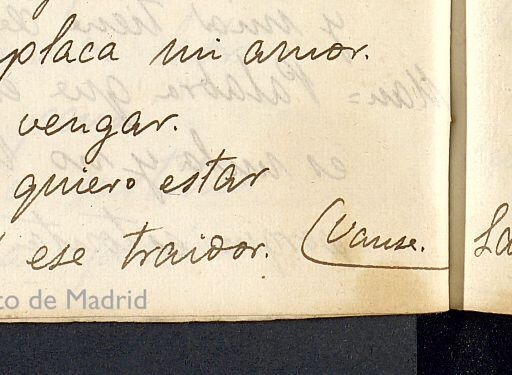 aplaca mi amor.
vengar.
quiero estar
ese traidor. (Vanse.
La
to de Madrid